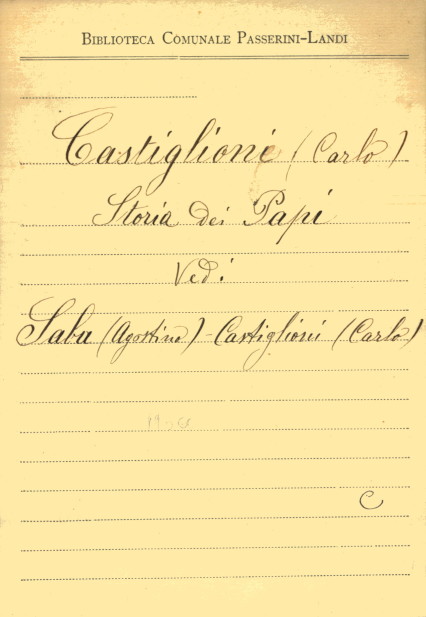 BIBLIOTECA COMUNALE PASSERINI-LANDI
Castiglioni (Carlo)
Storia dei Papi
Vedi
Saba (Agostino) - Castiglioni (Carlo)
C